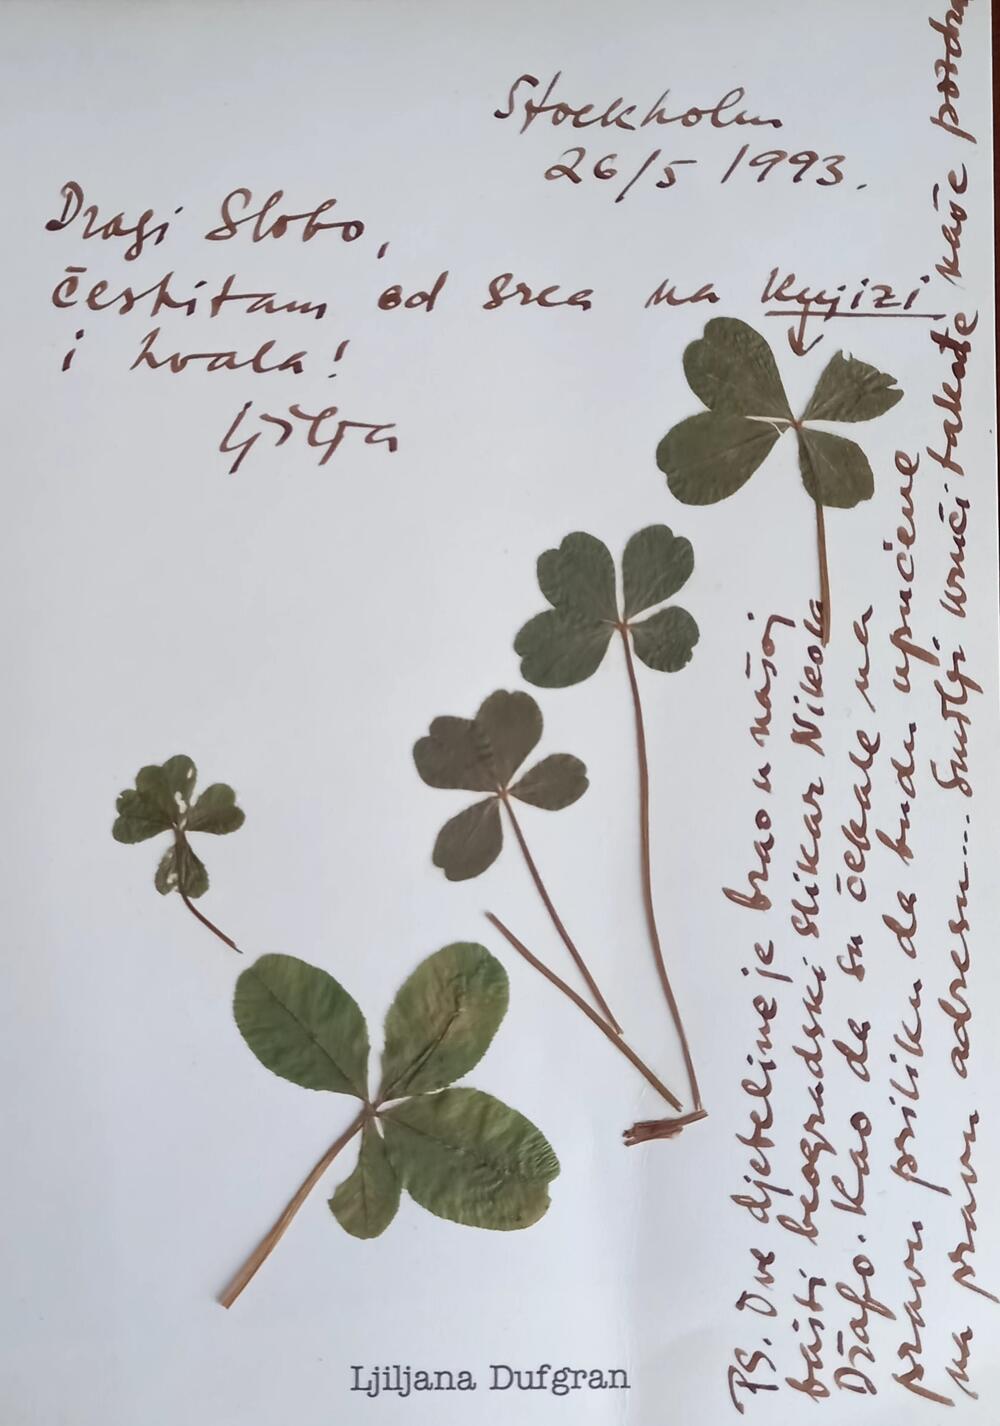 Stockholm
26/5 1993.
Dragi Slobo,
čestitam od srca na knjizi
i hvala!
Ljilja
PS. Ove djeteline je brao u našoj
bašti beogradski slikar Nikola
Džafo. Kao da su čekale na
pravu priliku da budu upućene
na pravu adresu... Smilji i unuci takođe naše pozdra
Ljiljana Dufgran